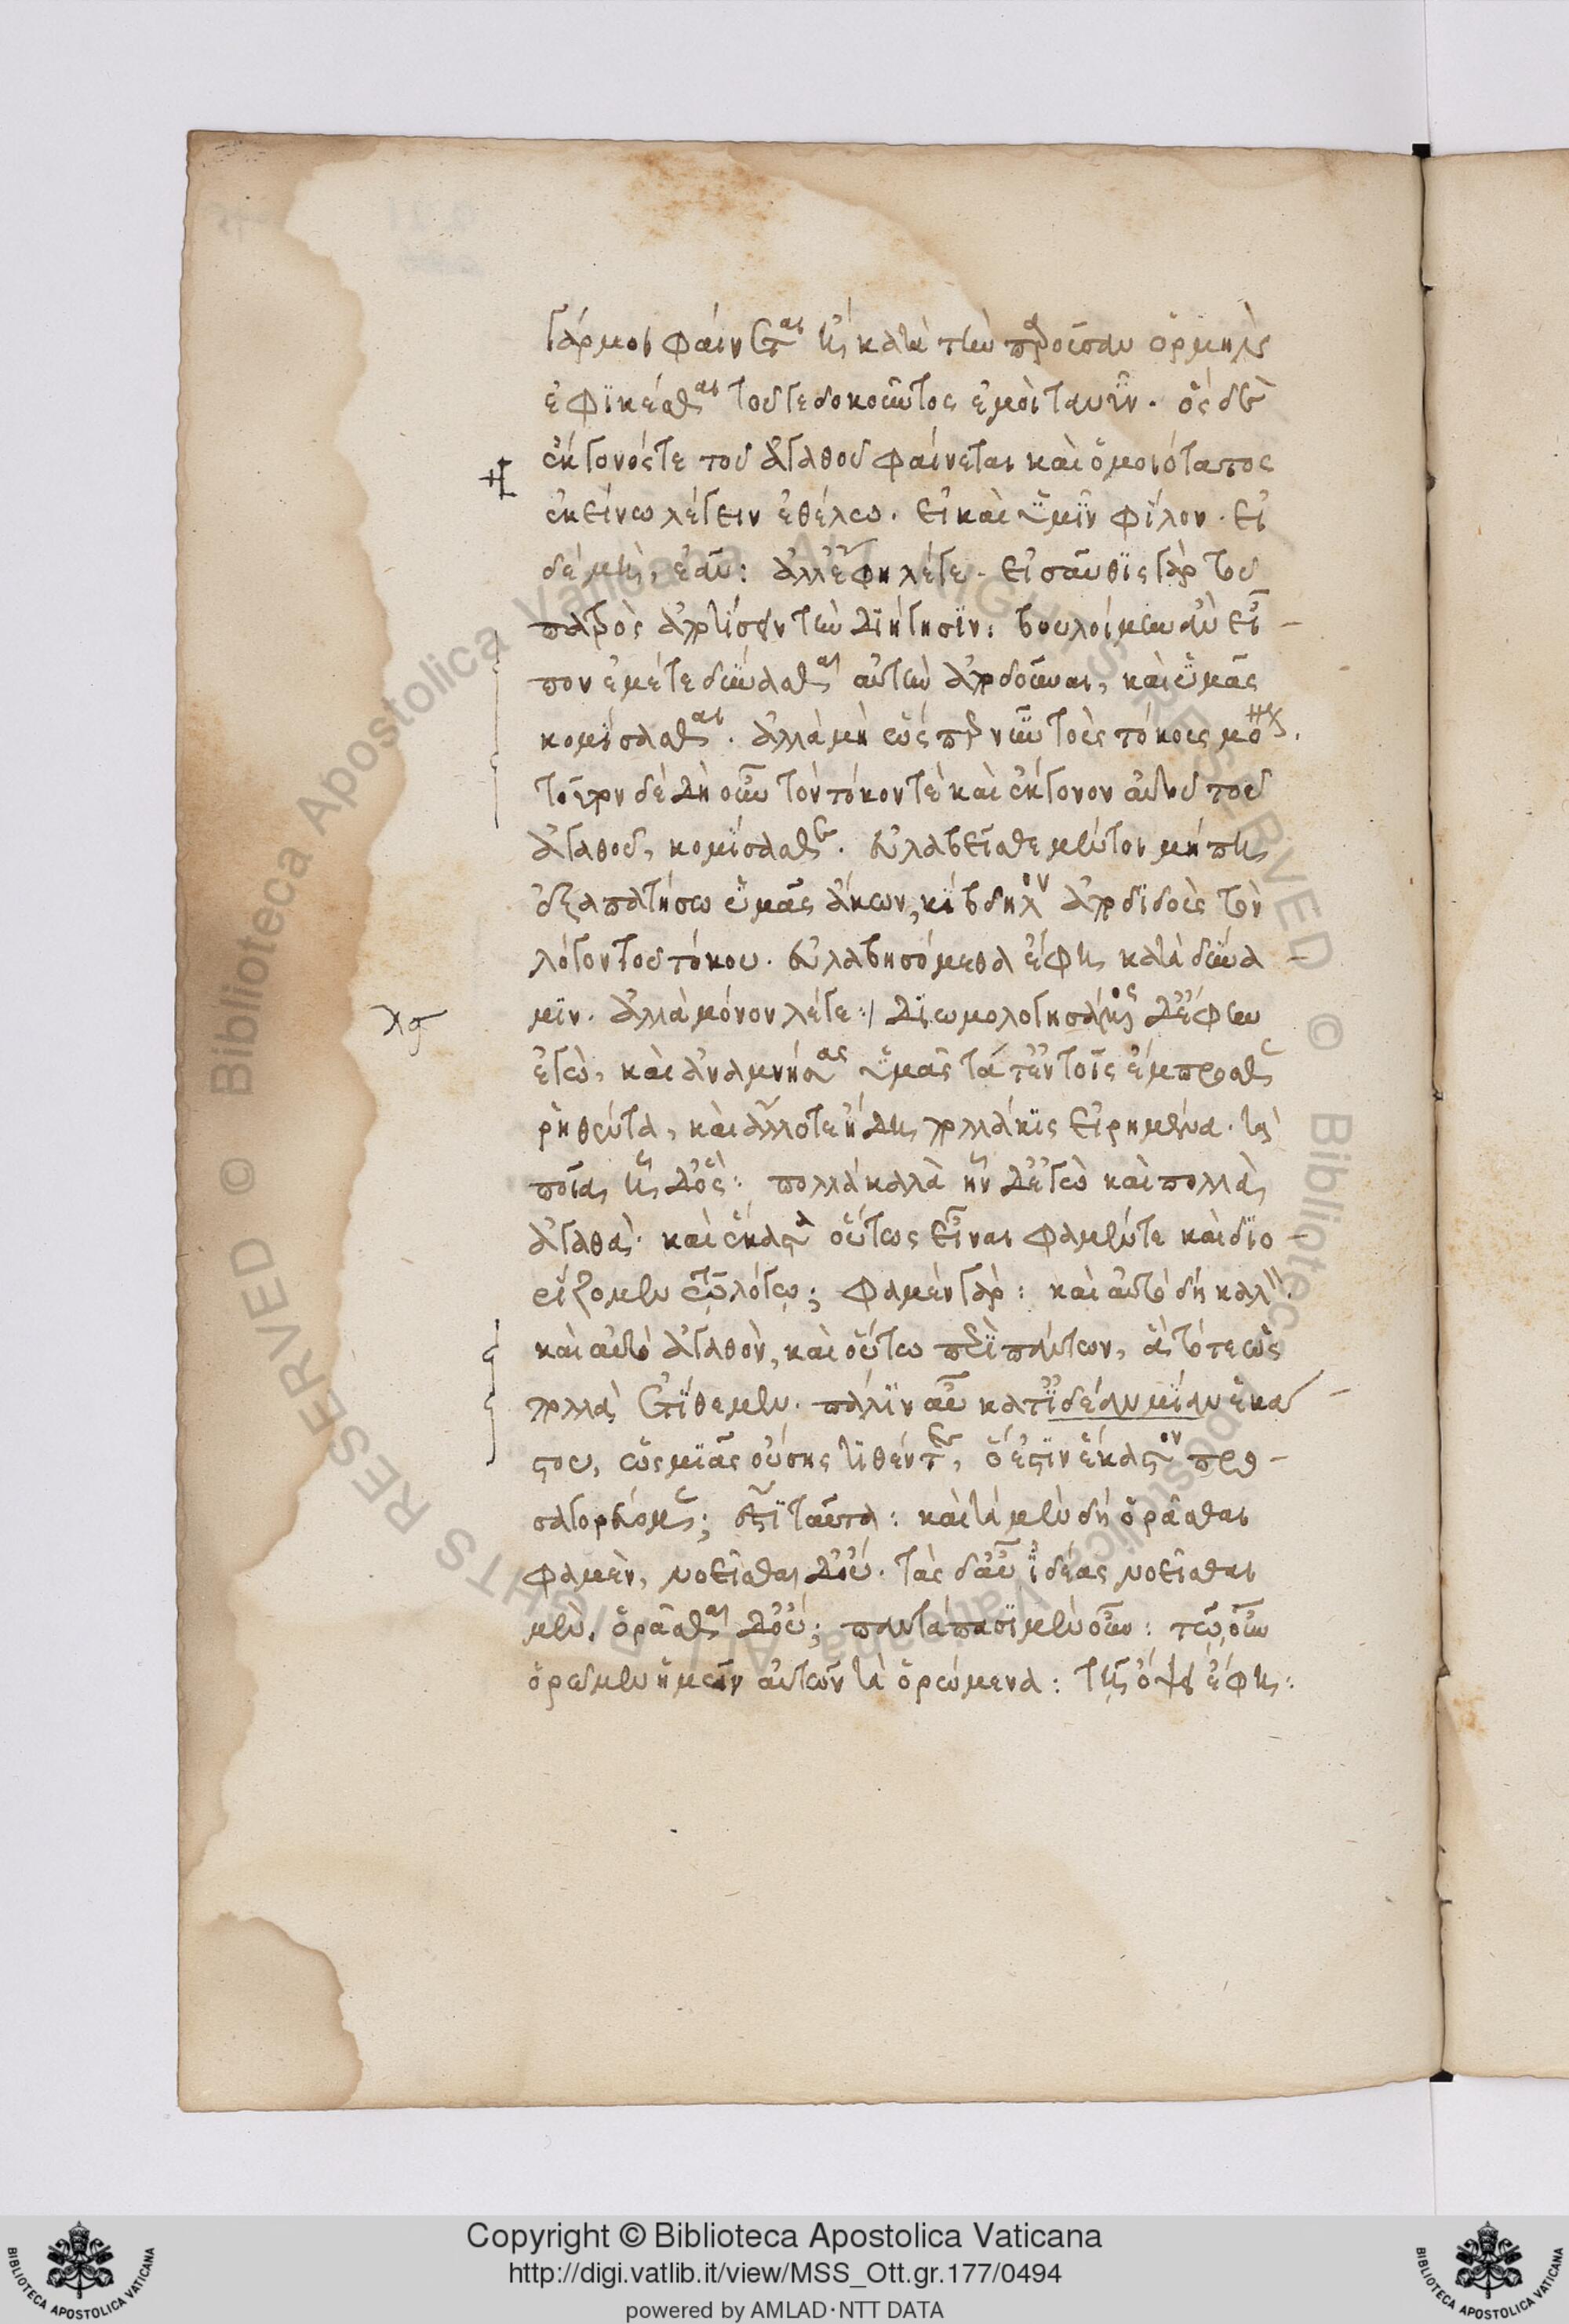 γάρ μοι φαίνεται ἢ κατὰ τὴν παροῦσαν ὁρμὴν
ἐφικέσθαι τοῦ γε δοκοῦντος ἐμοὶ τανῦν. ὃς δὲ
ἔκγονός τε τοῦ ἀγαθοῦ φαίνεται καὶ ὁμοιότατος
ἐκείνω λέγειν ἐθέλω. εἰ καὶ ὑμῖν φίλον. εἰ
δὲ μὴ, ἐᾶν: ἀλλ' ἔφη λέγε. εἰσαῦθις γὰρ τοῦ
πατρὸς ἀποτίσεις τὴν διήγησιν: βουλοίμην ἂν εἶ-
πον ἐμέ τε δύνασθαι αὐτὴν ἀποδοῦναι, καὶ ὑμᾶς
κομίσασθαι. ἀλλὰ μὴ ὥσπερ νῦν τοὺς τόκους μόνον.
τοῦτον δὲ δὴ οὖν τὸν τόκον τὲ καὶ ἔκγονον αὐτοῦ τοῦ
ἀγαθοῦ, κομίσασθε. εὐλαβεῖσθε μέντοι μή πη
ἐξαπατήσω ὑμᾶς ἄκων, κίβδηλον ἀποδιδοὺς τὸν
λόγον τοῦ τόκου. εὐλαβησόμεθα ἔφη κατὰ δύνα-
μιν. ἀλλὰ μόνον λέγε: διομολογησάμενος δ' ἔφην
ἐγὼ, καὶ ἀναμνήσας ὑμᾶς τά τ' ἐν τοῖς ἔμπροσθεν
ῥηθέντα, καὶ ἄλλοτε ἤδη πολλάκις εἰρημένα. τὰ
ποῖα; ἦ δ' ὅς: πολλὰ καλὰ ἦν δ' ἐγὼ καὶ πολλὰ
ἀγαθὰ. καὶ ἕκαστα οὕτως εἶναι φαμέν τε καὶ διο-
ρίζομεν τῷ λόγῳ; φαμὲν γάρ: καὶ αὐτὸ δὴ καλὸν.
καὶ αὐτὸ ἀγαθὸν, καὶ οὕτω περὶ πάντων, ἃ τότε ὡς
πολλὰ ἐτίθεμεν. πάλιν αὖ κατ' ἰδέαν μίαν ἑκά-
στου, ὡς μιᾶς οὔσης τιθέντες, ὃ ἔστιν ἕκαστον προ-
σαγορεύομεν; ἔστι ταῦτα: καὶ τὰ μὲν δὴ ὁρᾶσθαι
φαμὲν, νοεῖσθαι δ' οὔ. τὰς δ' αὖ ἰδέας νοεῖσθαι
μὲν, ὁρᾶσθαι δ' οὔ; παντάπασι μὲν οὖν: τῷ οὖν
ὁρῶμεν ἡμῶν αὐτῶν τὰ ὁρώμενα: τῇ ὄψει ἔφη:
Copyright © Biblioteca Apostolica Vaticana
http://digi.vatlib.it/view/MSS_Ott.gr.177/0494
powered by AMLAD·NTT DATA
BIBLIOTECA APOSTOLICA VATICANA
BIBLIOTECA APOSTOLICA VATICANA